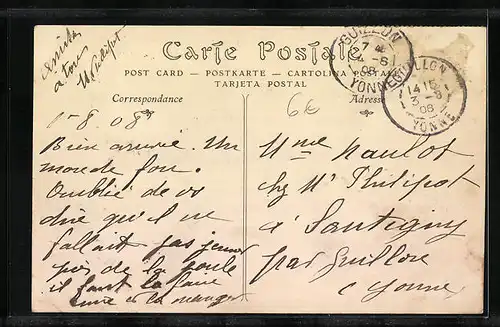 Amitiés
à tous
M Philipot
Carte Postale
POST CARD — POSTKARTE — CARTOLINA POSTALE
TARJETA POSTAL
Correspondance
Adresse
6€
GUILLON
7
6
08
YONNE
GUILLON
14 15
3 - 8
08
YONNE
1-8.08
Bien arrivée. Un
monde fou.
Oublié de vs
dire qu'il ne
fallait pas
de la poule
il faut la faire
cuire & la manger
Mme Naulot
chz Mr Philipot
à Santigny
par Guillon
Yonne